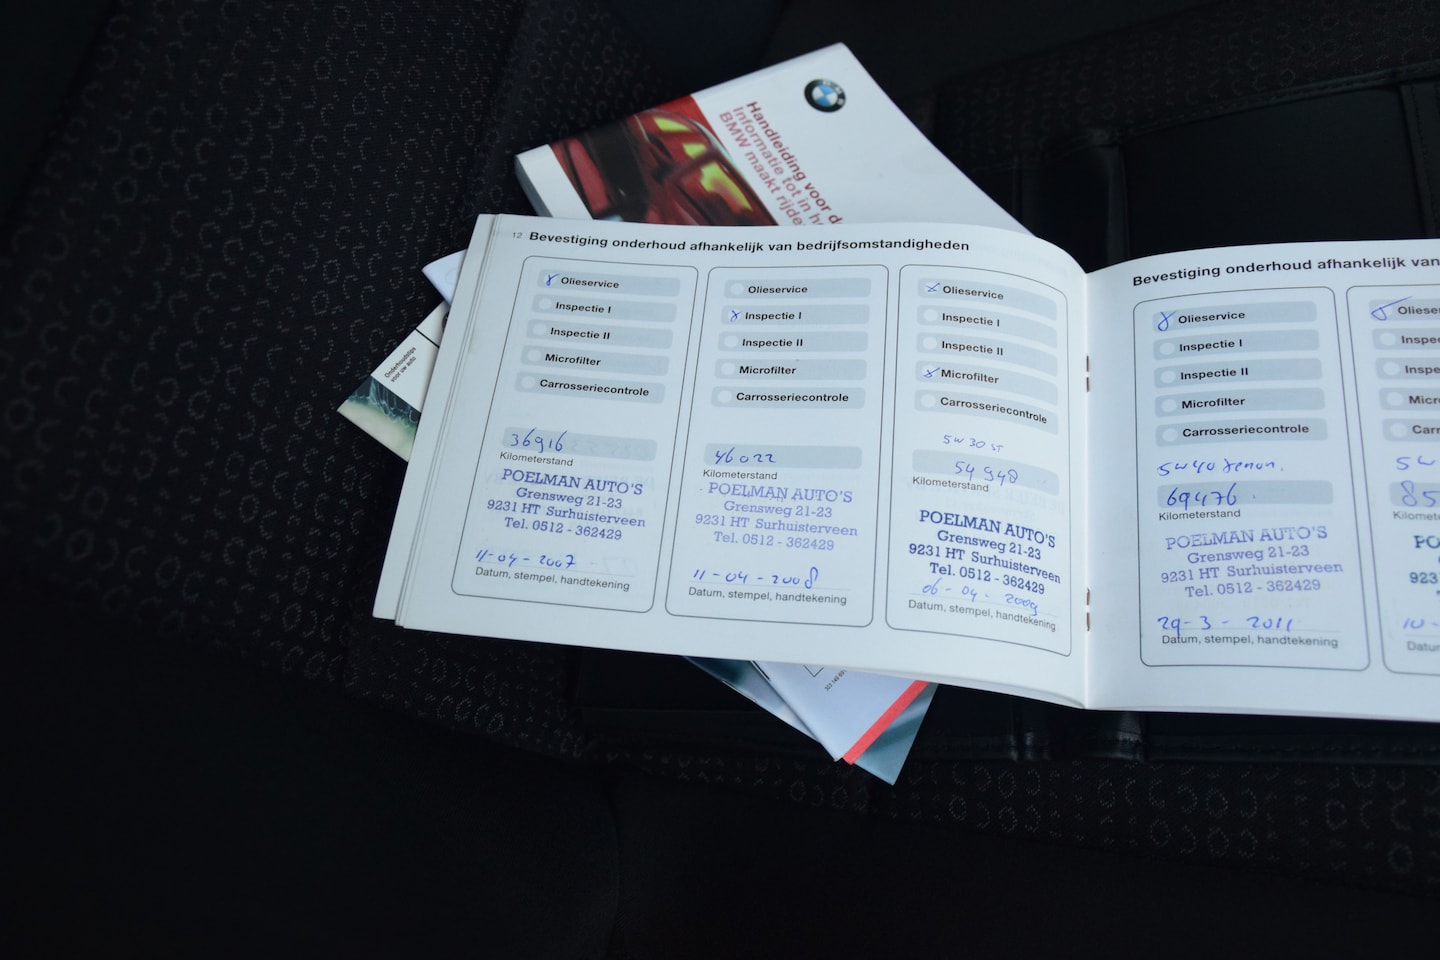 BMW
Handleiding voor
Informatie tot in
BMW maakt
Onderhoudstips
voor uw auto
12 Bevestiging onderhoud afhankelijk van bedrijfsomstandigheden
Olieservice
Inspectie I
Inspectie II
Microfilter
Carrosseriecontrole
36916
Kilometerstand
POELMAN AUTO'S
Grensweg 21-23
9231 HT Surhuisterveen
Tel. 0512 - 362429
11-04-2007
Datum, stempel, handtekening
Olieservice
Inspectie I
Inspectie II
Microfilter
Carrosseriecontrole
46022
Kilometerstand
POELMAN AUTO'S
Grensweg 21-23
9231 HT Surhuisterveen
Tel. 0512 - 362429
11-04-2008
Datum, stempel, handtekening
Olieservice
Inspectie I
Inspectie II
Microfilter
Carrosseriecontrole
5W30 ST
54948
Kilometerstand
POELMAN AUTO'S
Grensweg 21-23
9231 HT Surhuisterveen
Tel. 0512 - 362429
06-04-2009
Datum, stempel, handtekening
Bevestiging onderhoud afhankelijk van
Olieservice
Inspectie I
Inspectie II
Microfilter
Carrosseriecontrole
5W40
69476
Kilometerstand
POELMAN AUTO'S
Grensweg 21-23
9231 HT Surhuisterveen
Tel. 0512 - 362429
29-3-2011
Datum, stempel, handtekening
Oliese
Inspe
Inspe
Micro
Carr
5W
85
Kilomete
PO
923
10-
Datu